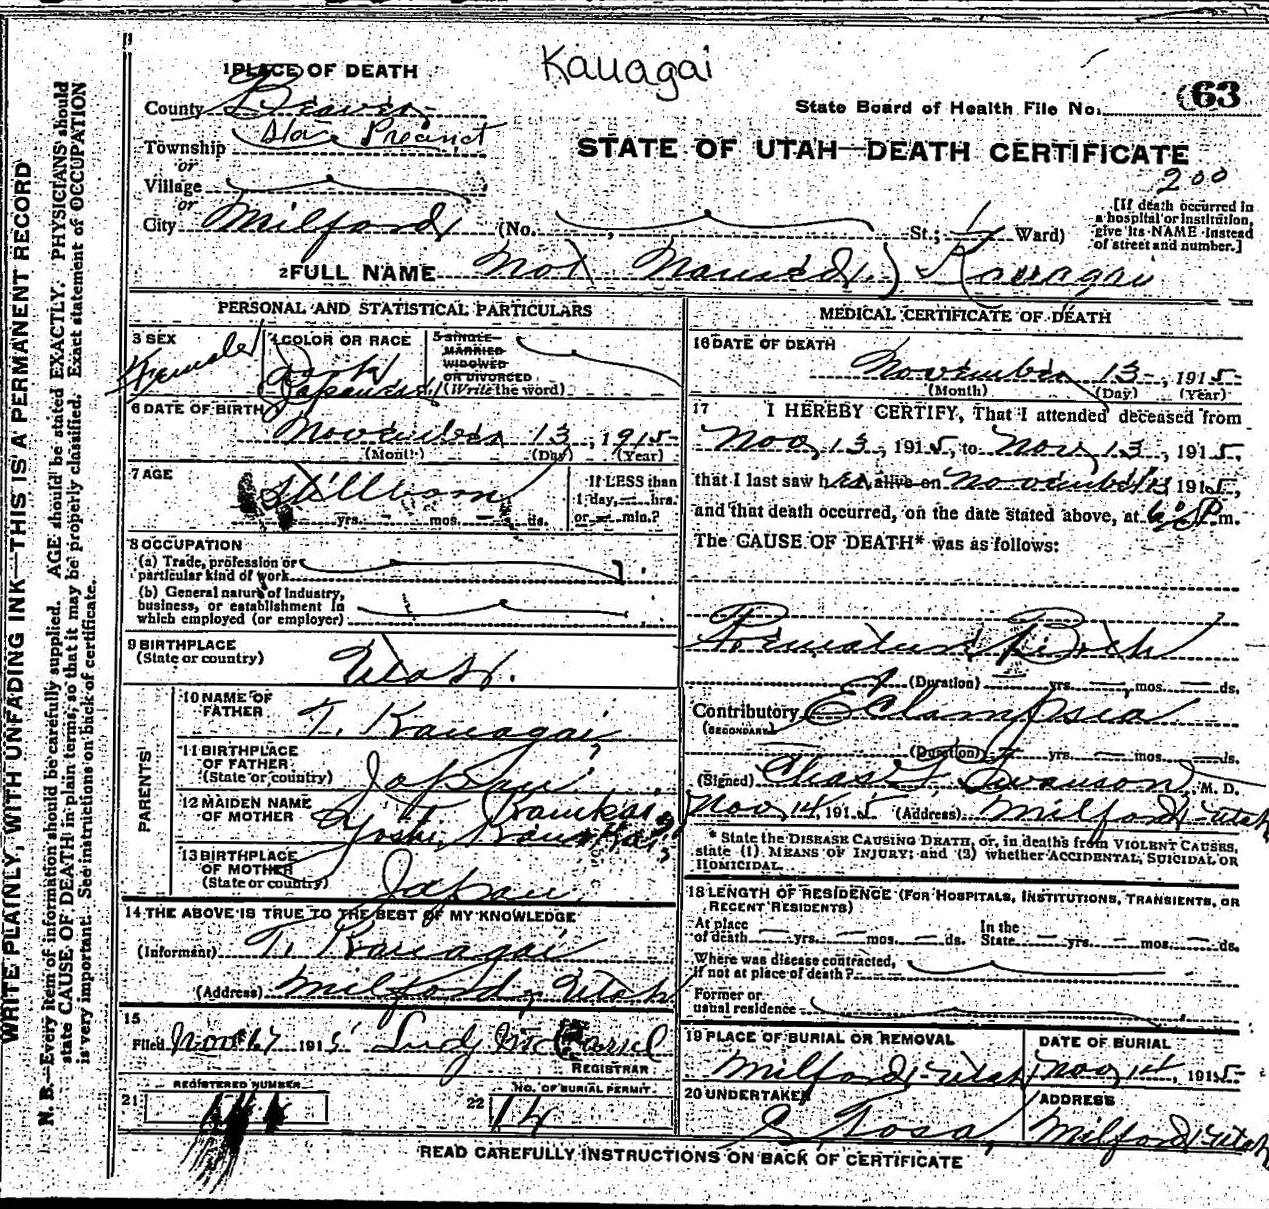 Kauagai
1 PLACE OF DEATH
County Beaver
State Board of Health File No. 63
Township Star Precinct
STATE OF UTAH—DEATH CERTIFICATE
200
or
Village
or
City Milford (No. , St.; Ward)
[If death occurred in a hospital or institution, give its NAME instead of street and number.]
2 FULL NAME Not Named Kauagai
PERSONAL AND STATISTICAL PARTICULARS
3 SEX Female
4 COLOR OR RACE Japanese
5 SINGLE MARRIED WIDOWED OR DIVORCED (Write the word)
6 DATE OF BIRTH
November 13, 1915
(Month) (Day) (Year)
7 AGE
Stillborn
yrs. mos. ds.
If LESS than 1 day, hrs. or min.?
8 OCCUPATION
(a) Trade, profession or particular kind of work
(b) General nature of industry, business, or establishment in which employed (or employer)
9 BIRTHPLACE
(State or country) Utah.
PARENTS
10 NAME OF FATHER T. Kauagai
11 BIRTHPLACE OF FATHER (State or country) Japan
12 MAIDEN NAME OF MOTHER Yoshi
13 BIRTHPLACE OF MOTHER (State or country) Japan
14 THE ABOVE IS TRUE TO THE BEST OF MY KNOWLEDGE
(Informant) T. Kauagai
(Address) Milford, Utah
15
Filed Nov 1915
REGISTRAR
21 REGISTERED NUMBER
22 NO. OF BURIAL PERMIT
14
MEDICAL CERTIFICATE OF DEATH
16 DATE OF DEATH
November 13, 1915
(Month) (Day) (Year)
17 I HEREBY CERTIFY, That I attended deceased from
Nov, 13, 1915, to Nov, 13, 1915,
that I last saw her alive on November 13 1915,
and that death occurred, on the date stated above, at P.m.
The CAUSE OF DEATH* was as follows:
Premature Birth
(Duration) yrs. mos. ds.
Contributory Eclampsia
(SECONDARY)
(Duration) yrs. mos. ds.
(Signed) Chas Swanson, M. D.
Nov 14, 1915 (Address) Milford Utah
* State the DISEASE CAUSING DEATH, or, in deaths from VIOLENT CAUSES,
state (1) MEANS OF INJURY; and (2) whether ACCIDENTAL, SUICIDAL OR
HOMICIDAL.
18 LENGTH OF RESIDENCE (FOR HOSPITALS, INSTITUTIONS, TRANSIENTS, OR
RECENT RESIDENTS)
At place of death yrs. mos. ds. In the State yrs. mos. ds.
Where was disease contracted, if not at place of death?
Former or usual residence
19 PLACE OF BURIAL OR REMOVAL
Milford Utah
DATE OF BURIAL
Nov 14, 1915
20 UNDERTAKER
ADDRESS
Milford Utah
READ CAREFULLY INSTRUCTIONS ON BACK OF CERTIFICATE
WRITE PLAINLY, WITH UNFADING INK—THIS IS A PERMANENT RECORD
N. B.—Every item of information should be carefully supplied. AGE should be stated EXACTLY. PHYSICIANS should
state CAUSE OF DEATH in plain terms, so that it may be properly classified. Exact statement of OCCUPATION
is very important. See instructions on back of certificate.